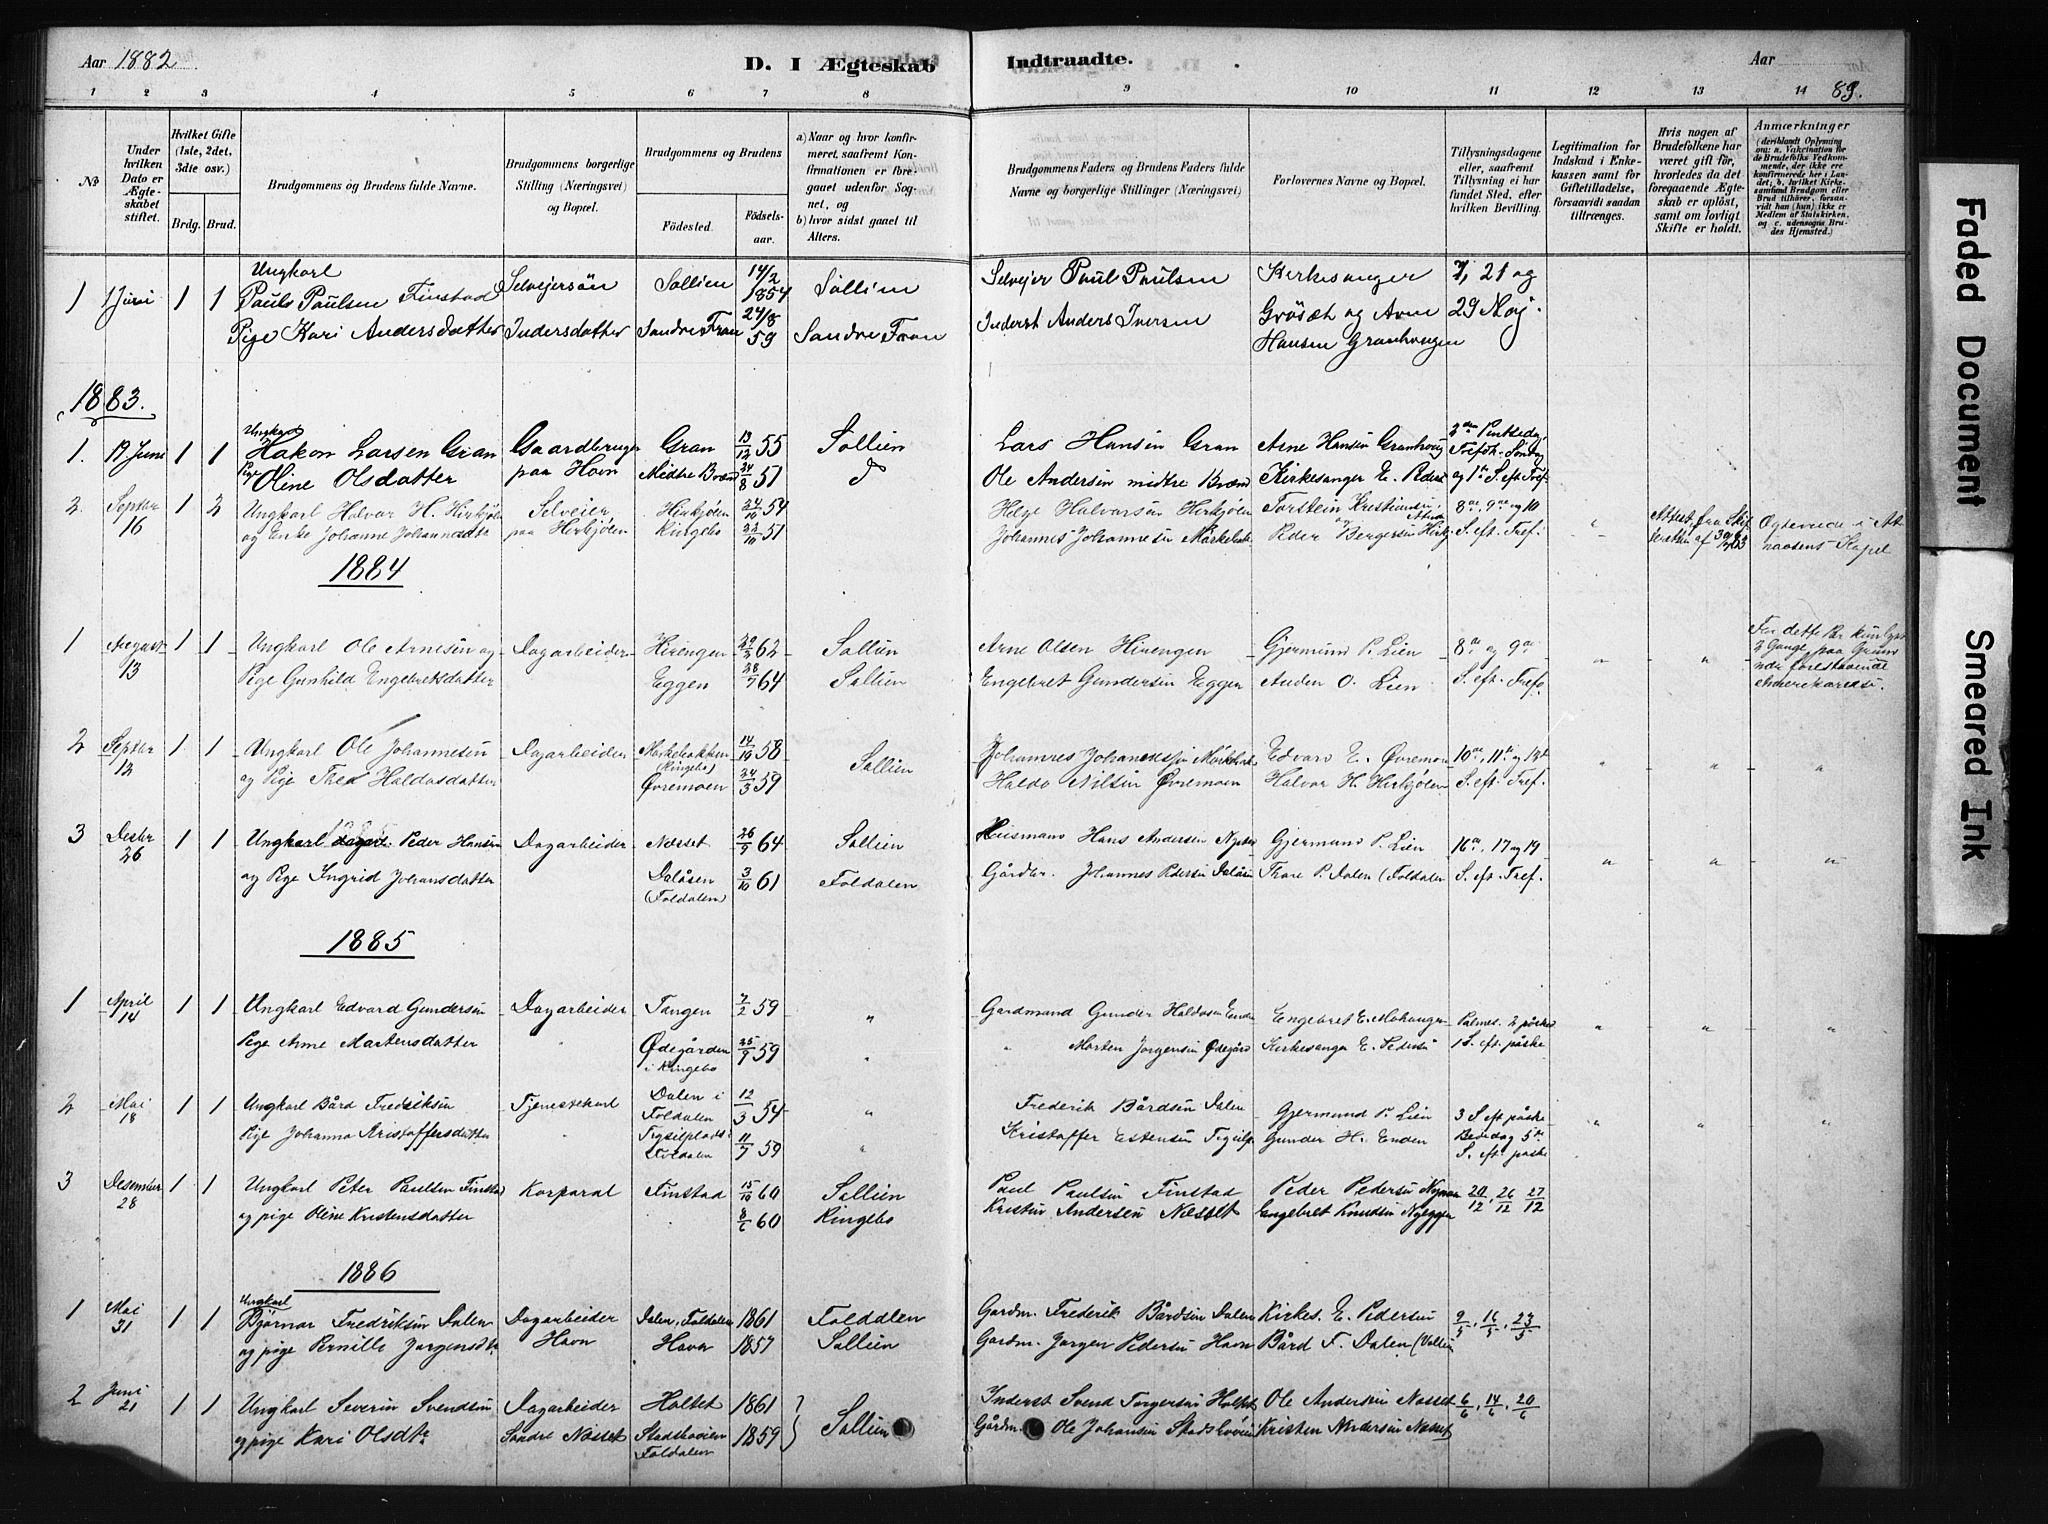 Aar 1882. D. I Ægteskab Indtraadte. Aar
1 2 3 4 5 6 7 8 9 10 11 12 13 14 89.
№ Under hvilken Dato er Ægteskabet stiftet. Hvilket Gifte (1ste, 2det, 3dte osv.) Brdg. Brud. Brudgommens og Brudens fulde Navne. Brudgommens borgerlige Stilling (Næringsvei) og Bopæl. Brudgommens og Brudens Födested. Födselsaar. a) Naar og hvor konfirmeret, saafremt Konfirmationen er foregaaet udenfor Sognet, og b) hvor sidst gaaet til Alters. Brudgommens Faders og Brudens Faders fulde Navne og borgerlige Stillinger (Næringsvei) Forlovernes Navne og Bopæl. Tillysningsdagene eller, saafremt Tillysning ei har fundet Sted, efter hvilken Bevilling. Legitimation for Indskud i Enkekassen samt for Giftetilladelse, forsaavidt saadan tiltrænges. Hvis nogen af Brudefolkene har været gift för, hvorledes da det foregaaende Ægteskab er oplöst, samt om lovligt Skifte er holdt. Anmærkninger (deriblandt Oplysning om: a. Vakcination for de Brudefolks Vedkommende, der ikke ere konfirmerede her i Landet; b. hvilket Kirkesamfund Brudgom eller Brud tilhörer, forsaavidt han (hun) ikke er Medlem af Statskirken, og c. udensogns Brudes Hjemsted.)
Ungkarl 14/2
1 1 Juni 1 1 Pauls Paulsen Finstad Selveiersøn Sollien 1854 Sollien Selveier Paul Paulsen Kirkesanger 7, 21 og
Pige Kari Andersdatter Indersdatter Søndre Fron 24/8 59 Søndre Fron Inderst Anders Iversen Grøsæt og Arne 29 Maj.
Hansen Granhougen
1883.
Ungkarl 2den Pintsedag
1. 17 Juni 1 1 Hakon Larsen Gran Gaardbruger Gran 13/12 55 Sollien Lars Hansen Gran Arne Hansen Granhoug Trefoh. Söndag
Pige Oline Olsdatter paa Hovn Midtre Brænd 24/8 51 d Ole Andersen midtre Brænd Kirkesanger E. Peders og 1ste S. eft. Tref
2. Septbr 16 1 2 Ungkarl Halvor H. Hirkjølen Selveier Hirkjølen 24/10 54 Helge Halvorsen Hirkjølen Torstein Kristiansen 8de, 9de og 10 Attest fra Skif Ægteviede i At
og Enke Johanne Johannesdtr paa Hirkjølen Ringebo 22/10 51 Johannes Johannesen Mørkebak Peder Bergersen S. eft. Tref. naasens Kapel
1884
1 August 13 1 1 Ungkarl Ole Arnesen og Dagarbeider Hirengen 62 Sollien Arne Olsen Hirengen Gjermund P. Lien 8de og 9de For dette Par kun lyst
Pige Gunhild Engebretsdatter Eggen 28/7 64 Sollien Engebret Gundersen Eggen Anden O. Lien S. eft. Tref. 2 Gange paa Grund
af forestaaende
Amerikareise.
2 Septbr 12 1 1 Ungkarl Ole Johannesen Dagarbeider Mørkebakken 14/10 58 Sollien Johannes Johannessen Mørkbak Edvard E. Øvremoen 10de, 11te og 12te
og Pige Thea Haldosdatter (Ringebo) Øvremoen 24/3 59 Haldo Nilsen Øvremoen Halvor H. Hirkjølen S. eft. Tref.
3 Desbr 26 1 1 Ungkarl Peder Hansen Dagarbeider Nesset 26/9 64 Sollien Huismand Hans Andersen Gjermund P. Lien 16de, 17 og 19
og Pige Ingrid Johansdatter Daläsen (Foldalen) 3/10 61 Foldalen Gårdbr. Johannes Pedersen Daläsen Thore P. Dalen (Foldalen S. eft. Tref.
1885
1 April 14 1 1 Ungkarl Edvard Gundersen Dagarbeider Tangen 7/2 59 " Gardmand Gunder Haldosen Enden Engebret E. Mohaugen Palmes. 2 påske
Pige Anne Martensdatter Ødegården i Ringebo 25/9 59 " " Morten Jorgensen Ødegård Kirkesanger E. Pedersen 1 S. eft. påske
2 Mai 18 1 1 Ungkarl Bård Fredriksen Tjenestekarl Dalen i Foldalen 12/3 54 " Frederik Bårdsen Dalen Gjermund P. Lien 3 S. eft påske
Pige Johanna Kristoffersdatter Trysilplads Foldalen 11/7 59 " Kristoffer Estensen Trysilp. Gunder H. Enden Bededag 5te
S. eft. påske
3 Desember 28 1 1 Ungkarl Peter Paulsen Finstad Korporal Finstad 15/10 60 Sollien Paul Paulsen Finstad Peder Pedersen 20/12, 26/12 27/12
og pige Oline Kristensdatter 8/6 60 Ringebo Kristen Andersen Nesset Engebret Knudsen Nyeggen
1886
1 Mai 31 1 1 Ungkarl Bjørnar Fredriksen Dalen Dagarbeider Dalen, Foldalen 1861 Folddlen Gardm. Frederik Bårdsen Dalen Kirkes. E. Pedersen 9/5, 16/5, 23/5
og pige Pernille Jorgensdtr Havn Havn 1857 Sollien Gardm. Jorgen Pedersen Havn Bård F. Dalen (Sollien
2 Juni 21 1 1 Ungkarl Severin Svendsen Dagarbeider Holtet 1861 Sollien Inderst Svend Torgersen Holtet Ole Andersen Nesset 6/6, 14/6, 20/6
og pige Kari Olsdtr Søndre Nesset Stadshøien Foldalen 1859 Gårdm. Ole Johansen Stadshøien Kristen Andersen Nesset
Faded Document
Smeared Ink